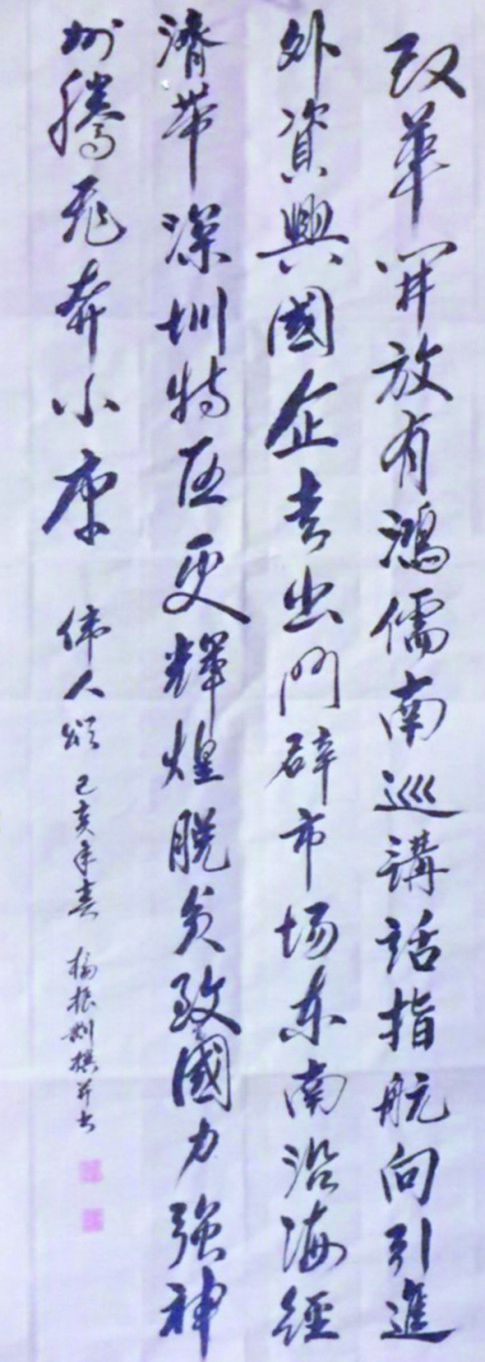 改革開放有鴻儒南巡講話指航向引進
外資興國企去出門辟市场东南沿海經
濟带深圳特区更輝煌脱贫致國力強神
州騰飛奔小康 伟人颂 己亥年春 杨振撰并书